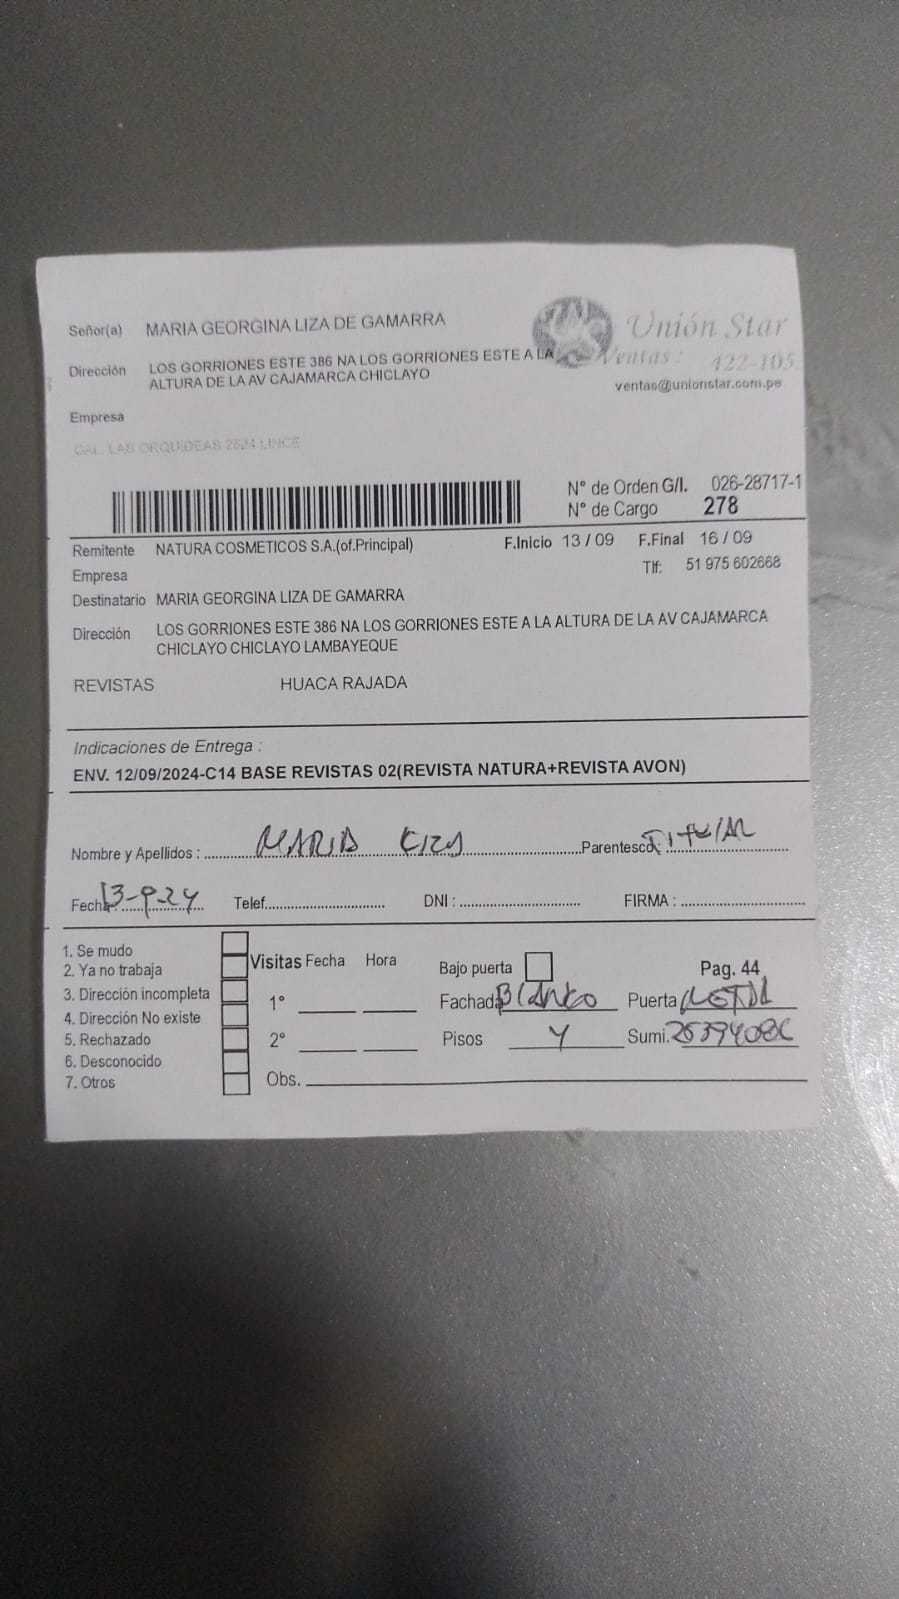 Señor(a) MARIA GEORGINA LIZA DE GAMARRA
Unión Star
Dirección LOS GORRIONES ESTE 386 NA LOS GORRIONES ESTE A LA
ALTURA DE LA AV CAJAMARCA CHICLAYO
Ventas : 422-105
ventas@unionstar.com.pe
Empresa
CAL. LAS ORQUIDEAS 2624 LINCE
N° de Orden G/I. 026-28717-1
N° de Cargo 278
Remitente NATURA COSMETICOS S.A.(of.Principal) F.Inicio 13 / 09 F.Final 16 / 09
Empresa Tlf: 51 975 602668
Destinatario MARIA GEORGINA LIZA DE GAMARRA
Dirección LOS GORRIONES ESTE 386 NA LOS GORRIONES ESTE A LA ALTURA DE LA AV CAJAMARCA
CHICLAYO CHICLAYO LAMBAYEQUE
REVISTAS HUACA RAJADA
Indicaciones de Entrega :
ENV. 12/09/2024-C14 BASE REVISTAS 02(REVISTA NATURA+REVISTA AVON)
Nombre y Apellidos : MARIA Parentesco: Titular
Fecha: 13-9-24 Telef. DNI : FIRMA :
1. Se mudo
2. Ya no trabaja
3. Dirección incompleta
4. Dirección No existe
5. Rechazado
6. Desconocido
7. Otros
Visitas Fecha Hora
1°
2°
Obs.
Bajo puerta Pag. 44
Fachada Blanco Puerta Metal
Pisos 4 Sumi.